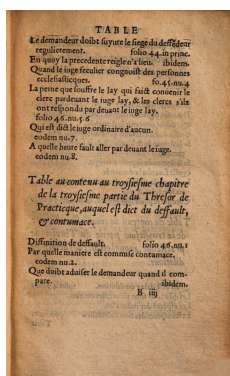 TABLE
Le demandeur doibt suyure le siege du deffédeur
regulierement. folio 44. in princ.
En quoy la precedente reigle n'a lieu. ibidem.
Quand le iuge seculier congnoist des personnes
ecclesiasticques. fo.45.nu.4
La peine que souffre le lay qui faict conuenir le
clerc pardeuant le iuge lay, & les clercs s'ilz
ont respondu par deuant le iuge lay.
folio 46.nu.5.6
Qui est dict le iuge ordinaire d'aucun.
eodem nu.7.
A quelle heure fault aller par deuant le iuge.
eodem nu.8.
Table au contenu au troysiesme chapitre
de la troysiesme partie du Thresor de
Practicque, auquel est dict du deffault,
& contumace.
Diffinition de deffault. folio 46.nu.1
Par quelle maniere est commise contumace.
eodem nu.2.
Que doibt aduiser le demandeur quand il com-
pare. ibidem.
B iiij